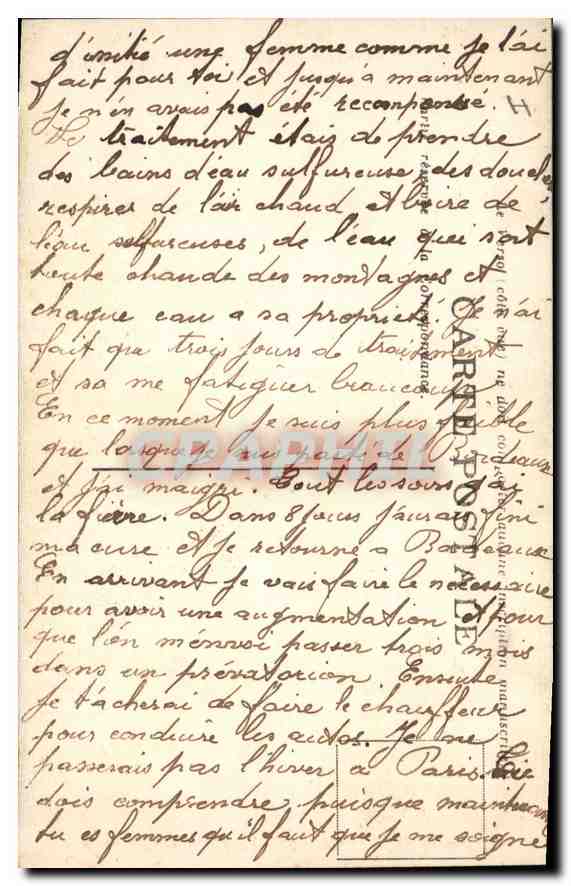 d'amitié une femme comme je l'ai
fait pour toi et jusqu'a maintenant
je n'en avais pas été recompensé.
Le traitement étais de prendre
des bains d'eau sulfureuse, des douches,
respirer de l'air chaud, et boire de
l'eau sulfureuses, de l'eau qui sort
toute chaude des montagnes et
chaque eau a sa propriété. Je n'ai
fait que trois jours de traitement
et sa me fatiguer beaucoup.
En ce moment je suis plus faible
que lorsque je suis parti de Bordeaux
et j'ai maigri. Tout les soirs j'ai
la fièvre. Dans 8 jours j'aurai fini
ma cure et je retourne a Bordeaux
En arrivant je vais faire le nécessaire
pour avoir une augmentation et pour
que l'on m'envoi passer trois mois
dans un prévatorion. Ensuite
je tacherai de faire le chauffeur
pour conduire les autos. Je ne
passerais pas l'hiver a Paris.
dois comprendre puisque maintenant
tu es femmes qu'il faut que je me soigne
CARTE POSTALE
CPAPHIL